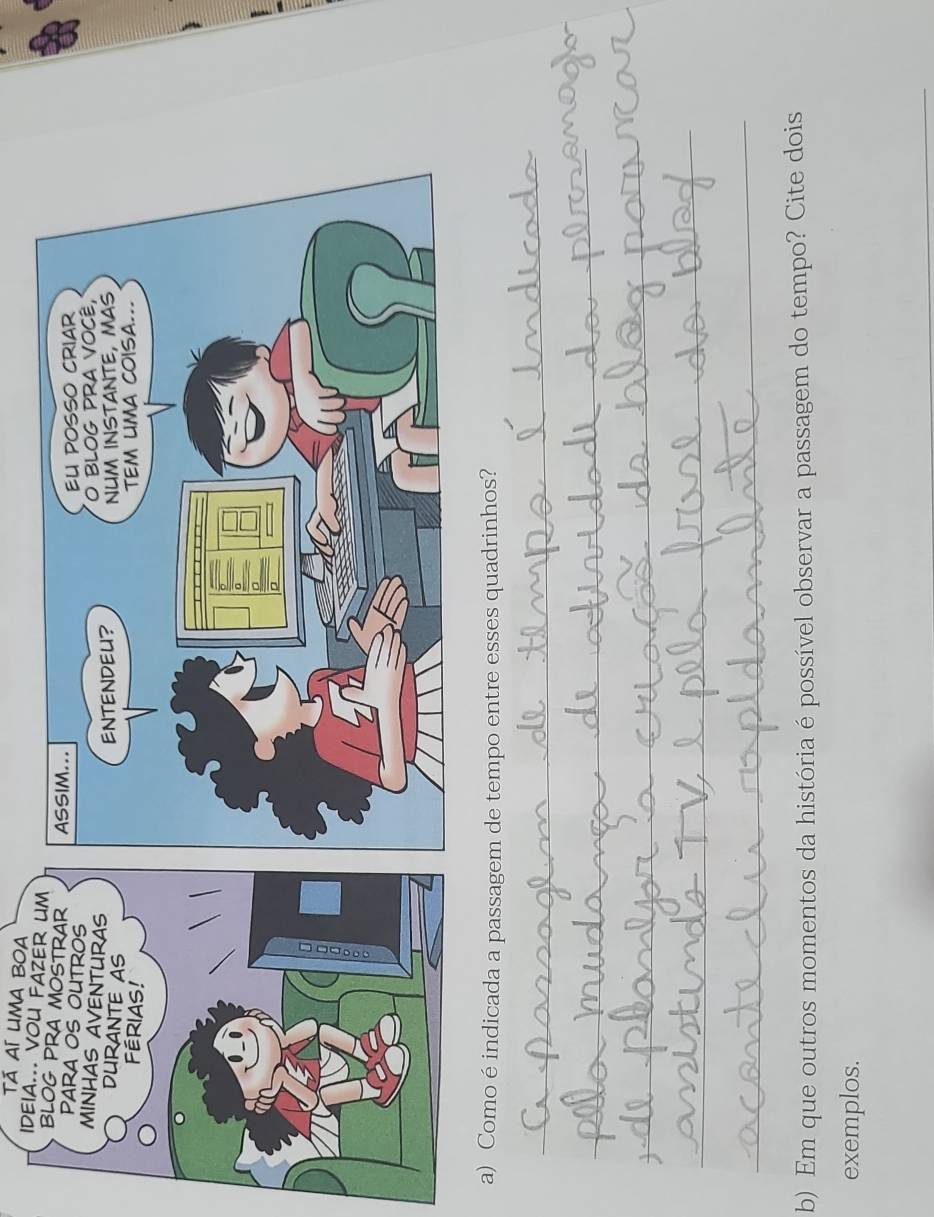 TÁ AÍ UMA BOA
IDEIA... VOU FAZER UM
BLOG PRA MOSTRAR
PARA OS OUTROS
MINHAS AVENTURAS
DURANTE AS
FÉRIAS!
ASSIM...
ENTENDEU?
EU POSSO CRIAR
O BLOG PRA VOCÊ,
NUM INSTANTE, MAS
TEM UMA COISA...
a) Como é indicada a passagem de tempo entre esses quadrinhos?
A passagem de tempo é indicada
pela mudança de atividade da
de a criação do blog
assistindo TV, e pela frase do
acontecer rapidamente
b) Em que outros momentos da história é possível observar a passagem do tempo? Cite dois
exemplos.